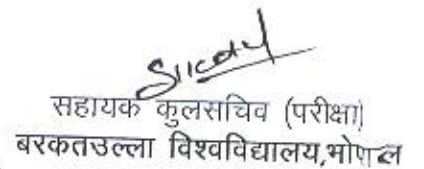 सहायक कुलसचिव (परीक्षा)
बरकतउल्ला विश्वविद्यालय,भोपाल